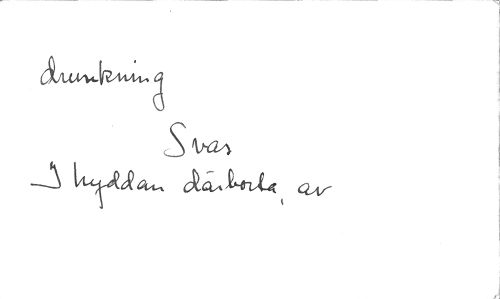 drunkning
Svar
I hyddan därborta, av